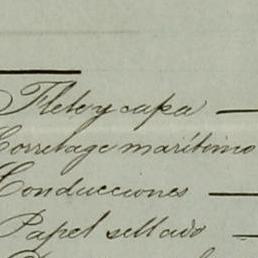 Flete y capa
Corretage marítimo
Conducciones
Papel sellado